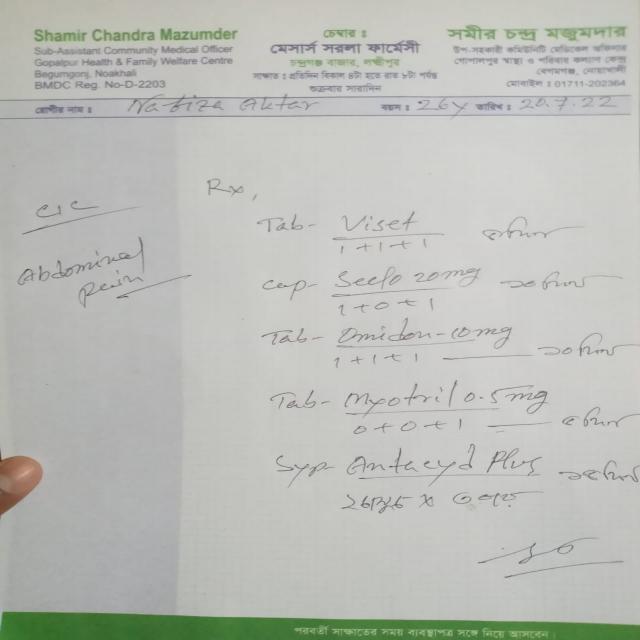 Shamir Chandra Mazumder
Sub-Assistant Community Medical Officer
Gopalpur Health & Family Welfare Centre
Begumgonj, Noakhali
BMDC Reg. No-D-2203
চেম্বার ঃ
মেসার্স সরলা ফার্মেসী
চন্দ্রগঞ্জ বাজার, লক্ষ্মীপুর
সাক্ষাত ঃ প্রতিদিন বিকাল ৪টা হতে রাত ৮টা পর্যন্ত
শুক্রবার সারাদিন
সমীর চন্দ্র মজুমদার
উপ-সহকারী কমিউনিটি মেডিকেল অফিসার
গোপালপুর স্বাস্থ্য ও পরিবার কল্যাণ কেন্দ্র
বেগমগঞ্জ, নোয়াখালী
মোবাইল : 01711-202364
রোগীর নাম ঃ Nabiza Aktar বয়স : 26y তারিখ : 20.7.22
C/C
Abdominal
Pain
Rx,
Tab- Viset
1+1+1
Cap- Seclo 20mg ১০ দিন
1+0+1
Tab- Omidon-10mg
1+1+1 ১০ দিন
Tab- Myotril 0.5mg
0+0+1
Syp- Antacyd Plus
পরবর্তী সাক্ষাতের সময় ব্যবস্থাপত্র সঙ্গে নিয়ে আসবেন।